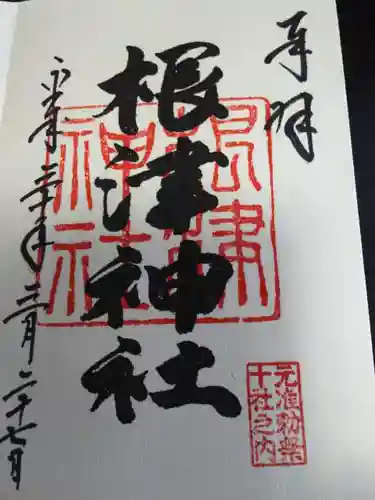 奉拝
根津神社
根津神社
元准勅祭
十社之内
平成三十年三月二十七日